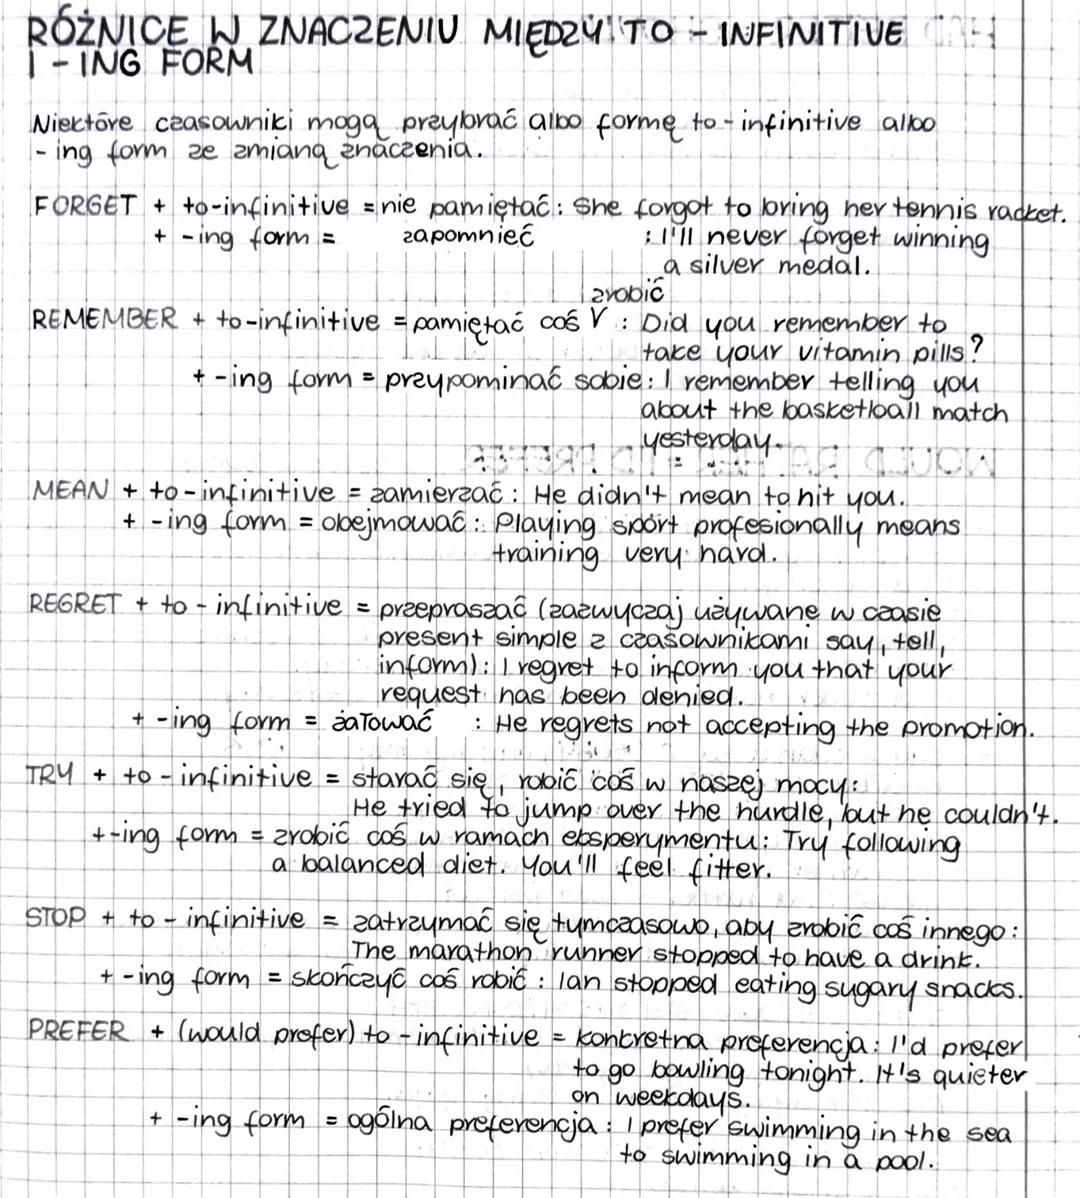 RÓŻNICE W ZNACZENIU MIĘDZY TO - INFINITIVE
I - ING FORM
Niektóre czasowniki mogą przybrać albo formę to - infinitive albo
- ing form ze zmianą znaczenia.
FORGET + to-infinitive = nie pamiętać : She forgot to bring her tennis racket.
+ -ing form = zapomnieć : I'll never forget winning
a silver medal.
zrobić
REMEMBER + to-infinitive = pamiętać coś V : Did you remember to
take your vitamin pills?
+ -ing form = przypominać sobie : I remember telling you
about the basketball match
yesterday.
MEAN + to - infinitive = zamierzać : He didn't mean to hit you.
+ -ing form = obejmować : Playing sport profesionally means
training very hard.
REGRET + to - infinitive = przepraszać (zazwyczaj używane w czasie
present simple z czasownikami say, tell,
inform) : I regret to inform you that your
request has been denied.
+ -ing form = żałować : He regrets not accepting the promotion.
TRY + to - infinitive = starać się, robić coś w naszej mocy :
He tried to jump over the hurdle, but he couldn't.
+ -ing form = zrobić coś w ramach eksperymentu : Try following
a balanced diet. You'll feel fitter.
STOP + to - infinitive = zatrzymać się tymczasowo, aby zrobić coś innego :
The marathon runner stopped to have a drink.
+ -ing form = skończyć coś robić : Ian stopped eating sugary snacks.
PREFER + (would prefer) to - infinitive = konkretna preferencja : I'd prefer
to go bowling tonight. It's quieter
on weekdays.
+ -ing form = ogólna preferencja : I prefer swimming in the sea
to swimming in a pool.